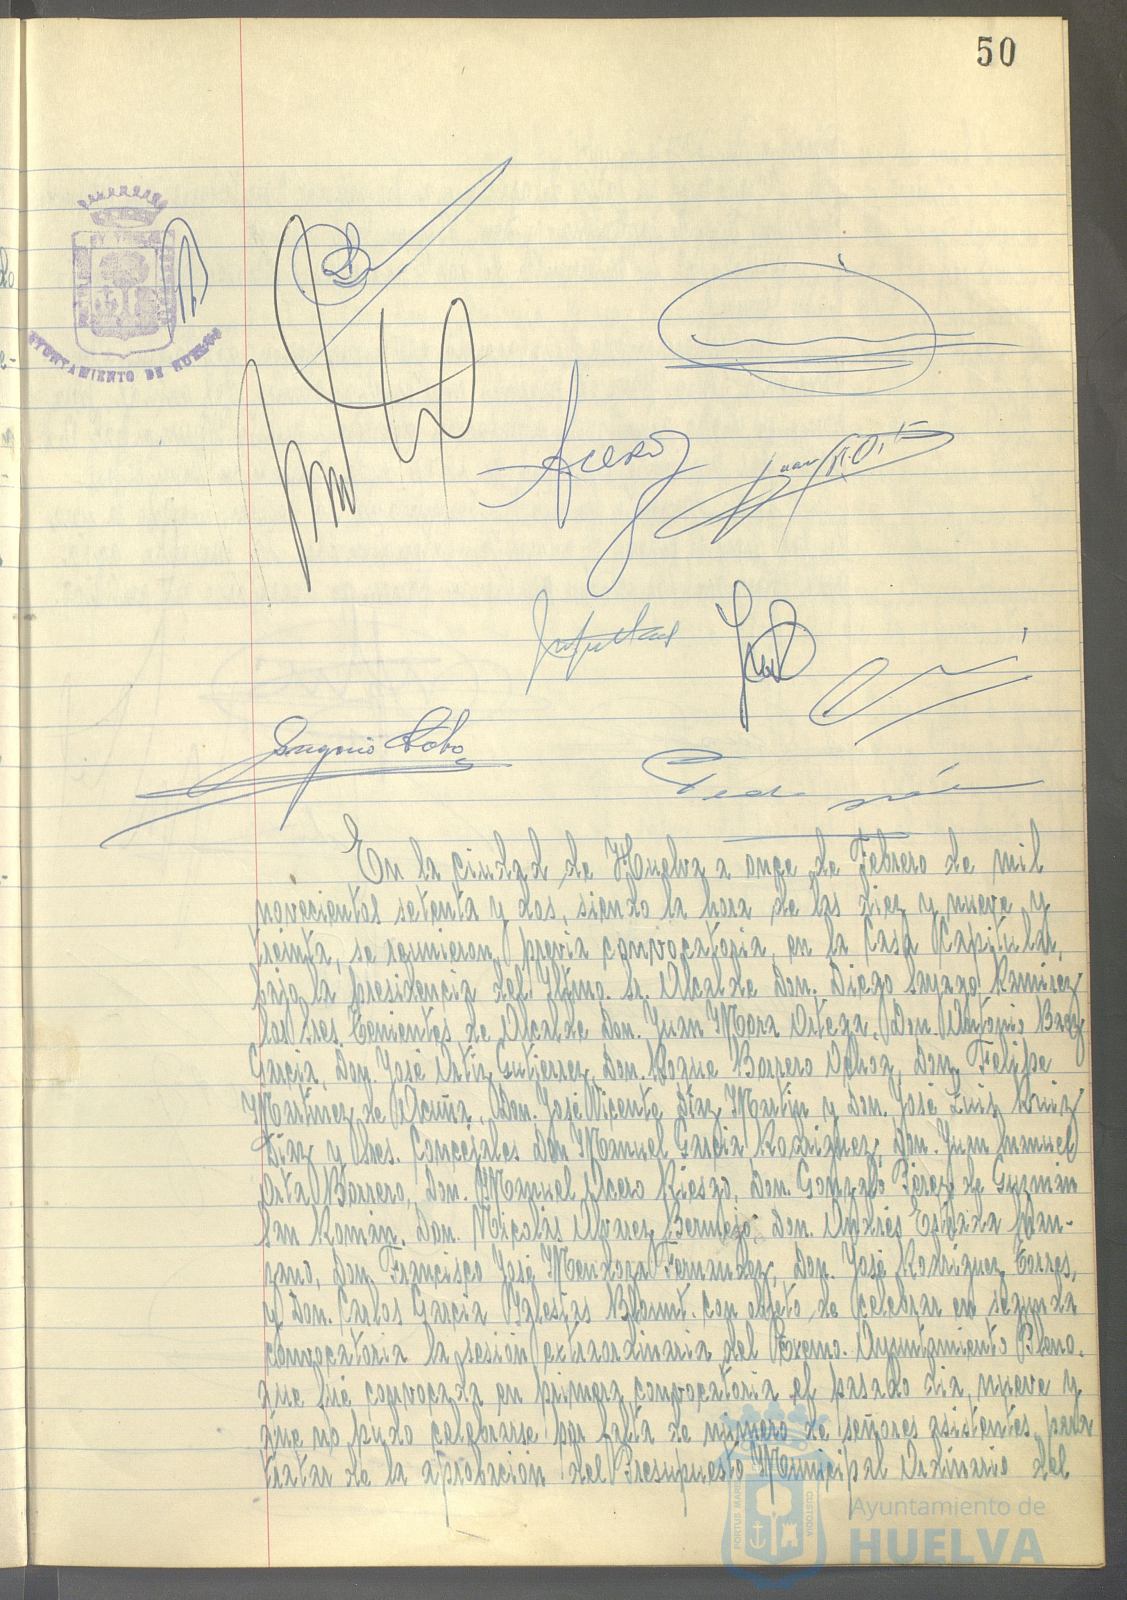 50
AYUNTAMIENTO DE HUELVA
Acero
Juan M. Orta
Eugenio Lobo
En la ciudad de Huelva a once de Febrero de mil
novecientos setenta y dos, siendo la hora de las diez y nueve y
treinta, se reunieron, previa convocatoria, en la Casa Capitular,
bajo la presidencia del Iltmo. Sr. Alcalde Don. Diego Sayago Ramirez
los Sres. Tenientes de Alcalde Don. Juan Mora Ortega, Don. Antonio Baez
Garcia, Don. José Ortiz Gutierrez, Don. Roque Borrero Ochoa, Don. Felipe
Martinez de Acuña, Don. José Vicente Díaz Martin y Don. José Luis Ruiz
Díaz y Sres. Concejales Don Manuel Garcia Rodriguez, Don. Juan Manuel
Orta Borrero, Don. Manuel Acero Riesgo, Don. Gonzalo Pérez de Guzmán
San Román, Don. Nicolás Alvarez Bermejo, Don. Andrés Estrada Man-
zano, Don. Francisco José Mendoza Fernandez, Don. José Rodriguez Torres,
y Don. Carlos Garcia Yglesias Blount. con objeto de celebrar en segunda
convocatoria la sesión extraordinaria del Excmo. Ayuntamiento Pleno,
que fué convocada en primera convocatoria el pasado dia, nueve y
que no pudo celebrarse por falta de número de señores asistentes, para
tratar de la aprobación del Presupuesto Municipal Ordinario del
PORTUS MARIS
CUSTODIA
Ayuntamiento de
HUELVA